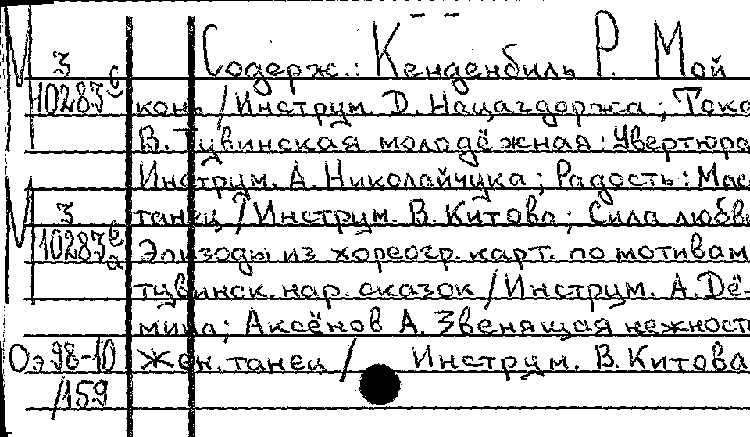 Содерж.: Кенденбиль Р. Мой
конь / Инструм. Д. Нацагдоржа; Тока
В. Тувинская молодёжная: Увертюра
Инструм. А. Николайчука; Радость: Мас
танец / Инструм. В. Китова; Сила любви
Эпизоды из хореогр. карт. по мотивам
тувинск. нар. сказок / Инструм. А. Дё-
мина; Аксёнов А. Звенящая нежность
Жен. танец / Инструм. В. Китова
М 3
10283
М 3
10283
Оэ 98-10
/159